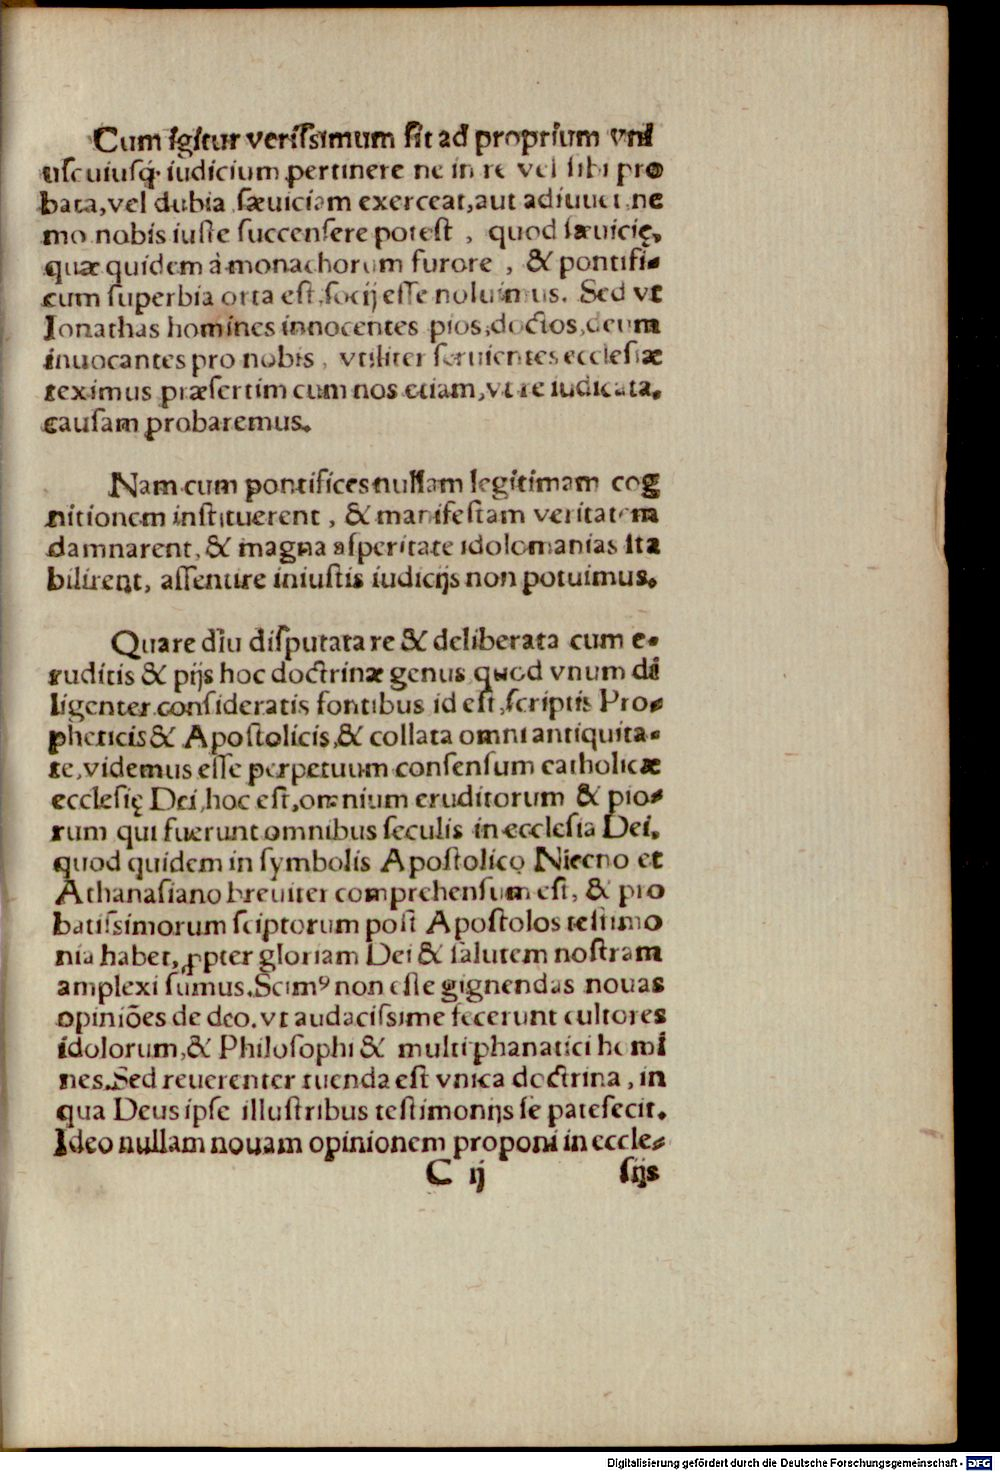 Cum igitur verissimum sit ad proprium vni
uscuiusq́; iudicium pertinere ne in re vel sibi pro
bata, vel dubia sæuiciam exerceat, aut adiuuet, ne
mo nobis iuste succensere potest, quod sæuicię,
quæ quidem à monachorum furore, & pontifi-
cum superbia orta est, socij esse noluimus. Sed vt
Ionathas homines innocentes pios, doctos, deum
inuocantes pro nobis, vtiliter seruientes ecclesiæ
teximus præsertim cum nos etiam, vt re iudicata,
causam probaremus.
Nam cum pontifices nullam legitimam cog
nitionem instituerent, & manifestam veritatem
damnarent, & magna asperitate idolomanias sta
bilirent, assentire iniustis iudicijs non potuimus.
Quare diu disputata re & deliberata cum e-
ruditis & pijs hoc doctrinæ genus quod vnum di
ligenter consideratis fontibus id est, scriptis Pro-
pheticis & Apostolicis, & collata omni antiquita-
te, videmus esse perpetuum consensum catholicæ
ecclesię Dei, hoc est, omnium eruditorum & pio-
rum qui fuerunt omnibus seculis in ecclesia Dei,
quod quidem in symbolis Apostolico Niceno et
Athanasiano breuiter comprehensum est, & pro
batissimorum sciptorum post Apostolos testimo
nia habet, ꝓpter gloriam Dei & salutem nostram
amplexi sumus. Scimꝰ non esse gignendas nouas
opiniões de deo. vt audacissime fecerunt cultores
idolorum, & Philosophi & multi phanatici homi
nes. Sed reuerenter tuenda est vnica doctrina, in
qua Deus ipse illustribus testimonijs se patefecit.
Ideo nullam nouam opinionem proponi in eccle-
C ij sijs
Digitalisierung gefördert durch die Deutsche Forschungsgemeinschaft - DFG